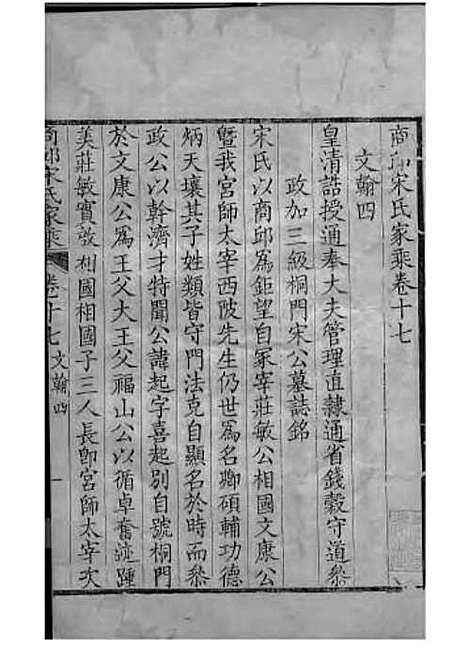 商邱宋氏家乘卷十七
文翰四
皇清誥授通奉大夫管理直隸通省錢穀守道叅
政加三級桐門宋公墓誌銘
宋氏以商邱爲鉅望自冢宰莊敏公相國文康公
暨我宮師太宰西陂先生仍世爲名卿碩輔功德
炳天壤其子姓類皆守門法克自顯名於時而叅
政公以幹濟才特聞公諱起字喜起別自號桐門
於文康公爲王父大王父福山公以循卓奮迹踵
美莊敏實啟相國相國子三人長卽宮師太宰次
商邱宋氏家乘
卷十七
文翰四
一